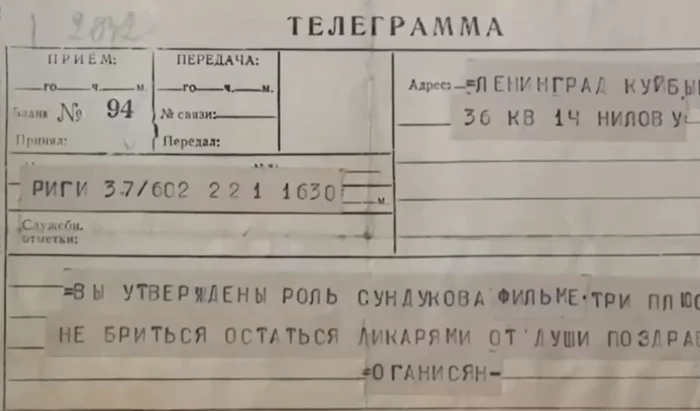 2032
ТЕЛЕГРАММА
ПРИЁМ:
го ч. м.
Бланк № 94
Принял:
ПЕРЕДАЧА:
го ч. м.
№ связи:
Передал:
Адрес: =ЛЕНИНГРАД КУЙБЫ
36 КВ 14 НИЛОВУ
РИГИ 37/602 221 1630 м.
Служебн.
отметки:
=ВЫ УТВЕРЖДЕНЫ РОЛЬ СУНДУКОВА ФИЛЬМЕ ТРИ ПЛЮС
НЕ БРИТЬСЯ ОСТАТЬСЯ ДИКАРЯМИ ОТ ДУШИ ПОЗДРАВ
=ОГАНИСЯН-